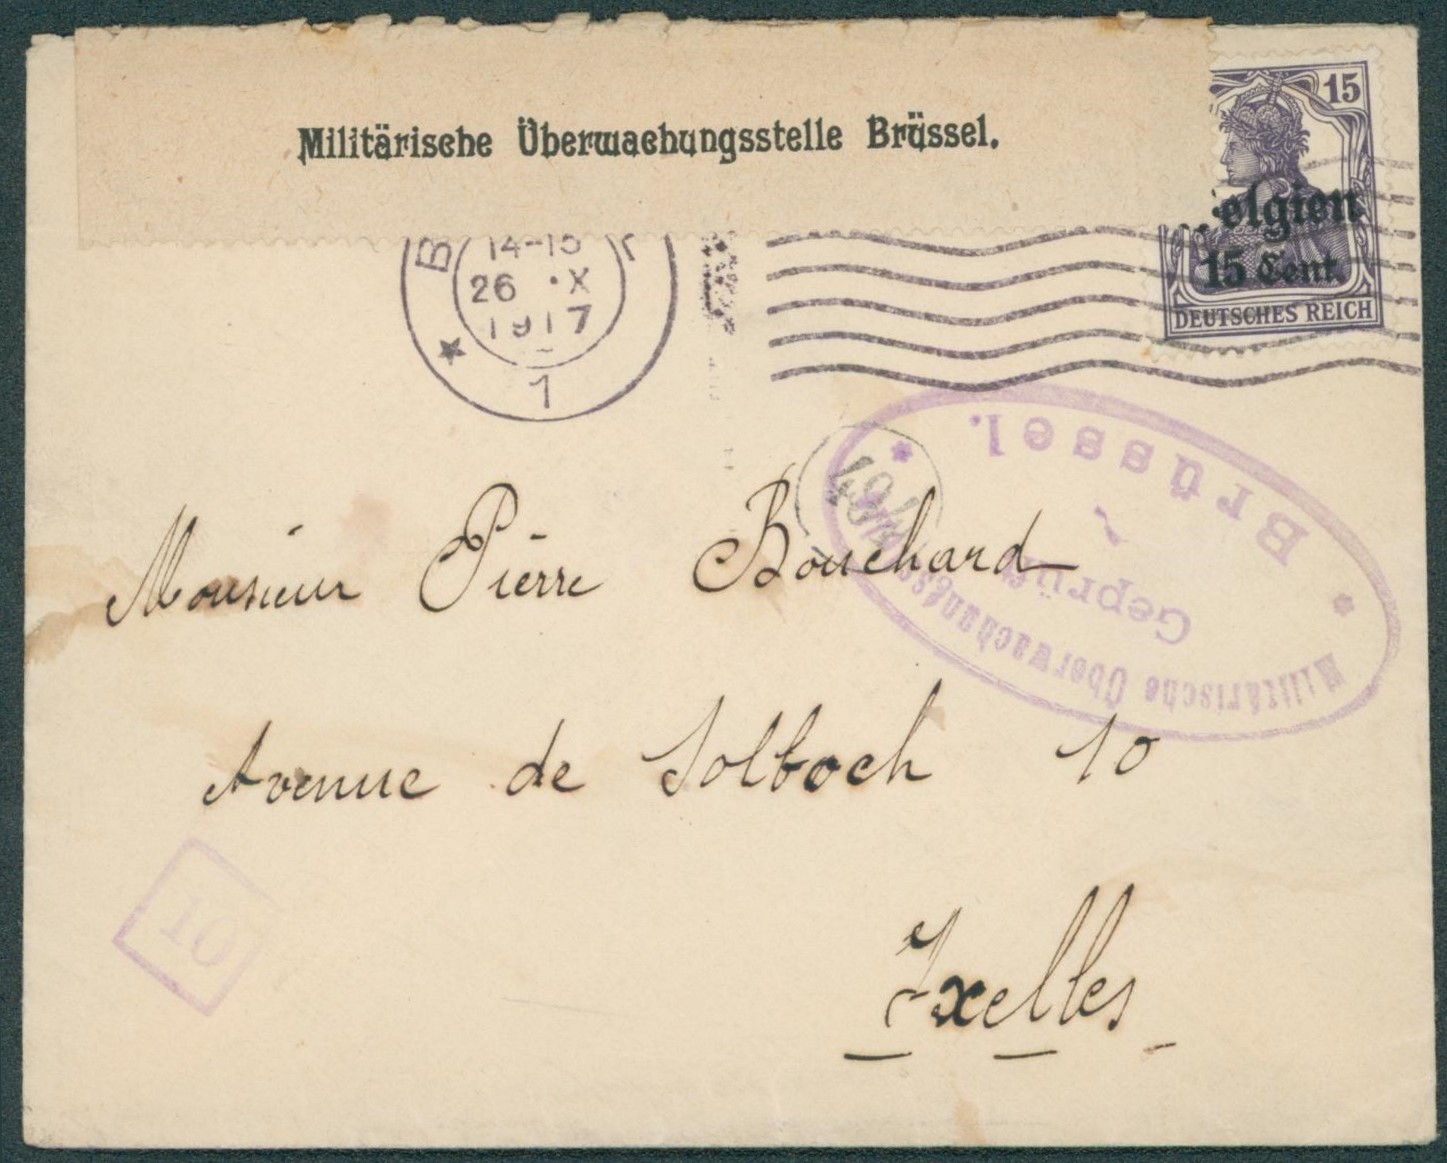 Militärische Überwachungsstelle Brüssel.
15
elgien
15 Cent.
DEUTSCHES REICH
14-15
26 · X
1917
1
Brüssel.
Geprüft
Militärische Überwachungsstelle
Monsieur Pierre Bouchard
Avenue de Solboch 10
Ixelles
10